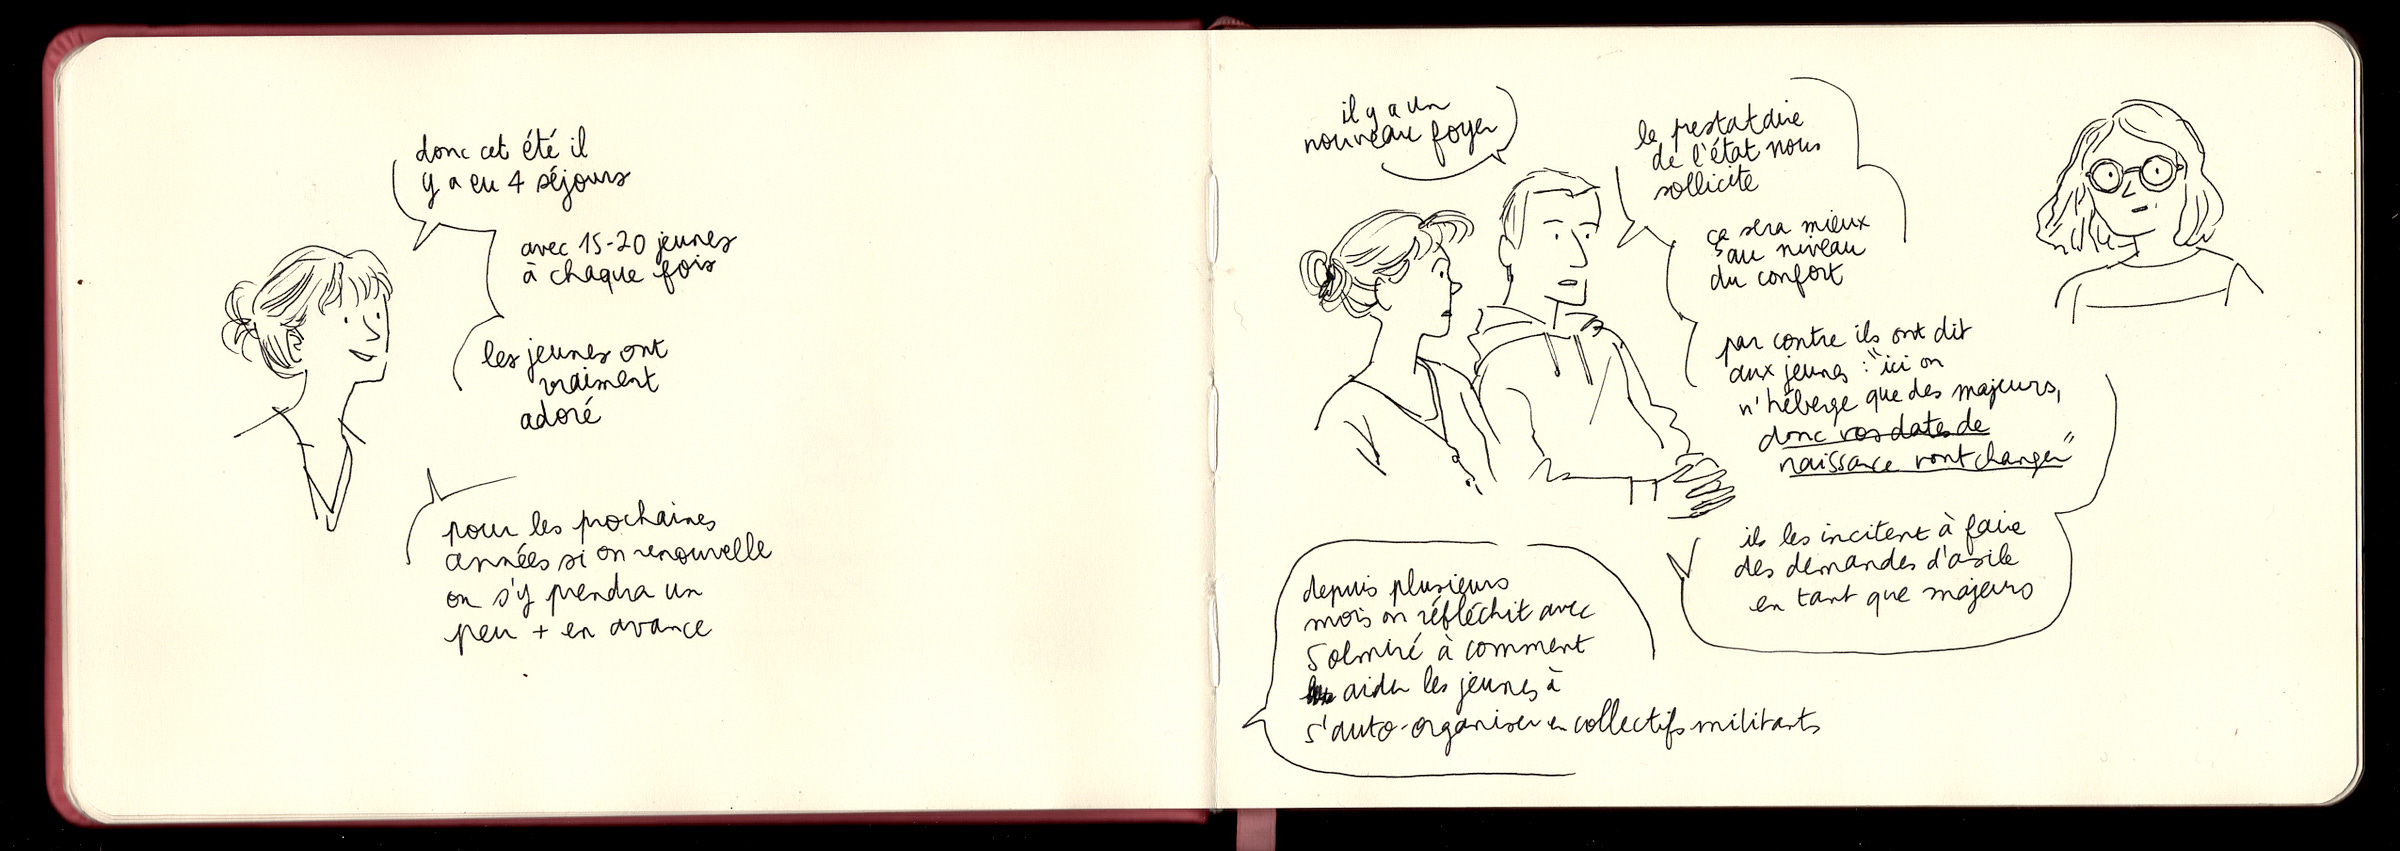 donc cet été il
y a eu 4 séjours
avec 15-20 jeunes
à chaque fois
les jeunes ont
vraiment
adoré
pour les prochaines
années si on renouvelle
on s'y prendra un
peu + en avance
il y a un
nouveau foyer
le prestataire
de l'état nous
sollicite
ça sera mieux
au niveau
du confort
par contre ils ont dit
aux jeunes : "ici on
n'héberge que des majeurs,
donc vos dates de
naissance vont changer"
ils les incitent à faire
des demandes d'asile
en tant que majeurs
depuis plusieurs
mois on réfléchit avec
à comment
aider les jeunes à
s'auto-organiser en collectifs militants